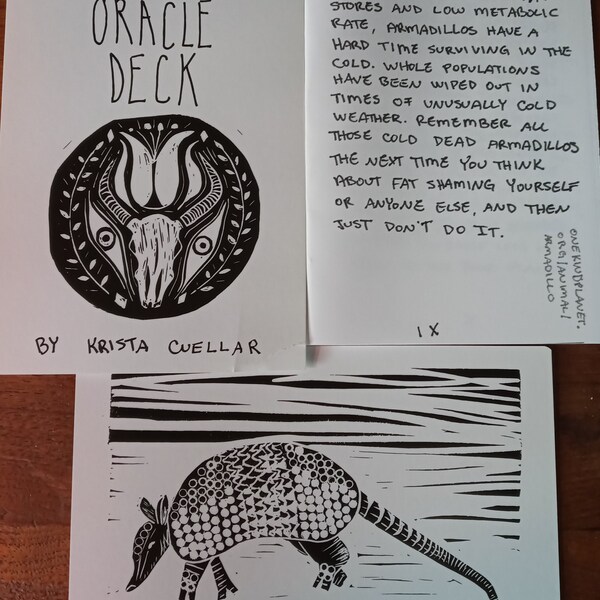 ORACLE
DECK
BY KRISTA CUELLAR
STORES AND LOW METABOLIC
RATE, ARMADILLOS HAVE A
HARD TIME SURVIVING IN THE
COLD. WHOLE POPULATIONS
HAVE BEEN WIPED OUT IN
TIMES OF UNUSUALLY COLD
WEATHER. REMEMBER ALL
THOSE COLD DEAD ARMADILLOS
THE NEXT TIME YOU THINK
ABOUT FAT SHAMING YOURSELF
OR ANYONE ELSE, AND THEN
JUST DON'T DO IT.
ONEKINDPLANET.
ORG/ANIMAL/
ARMADILLO
IX